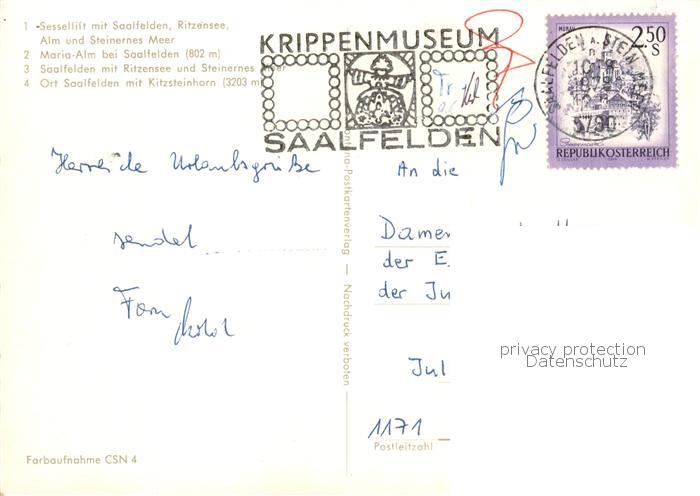 1 Sessellift mit Saalfelden, Ritzensee,
Alm und Steinernes Meer
2 Maria-Alm bei Saalfelden (802 m)
3 Saalfelden mit Ritzensee und Steinernes Meer
4 Ort Saalfelden mit Kitzsteinhorn (3203 m)
KRIPPENMUSEUM
SAALFELDEN
MURAU
2.50 S
REPUBLIK ÖSTERREICH
SAALFELDEN A. STEIN. MEER
5760
Urlaubsgrüße
sendet
Fam
An die
Damen
der E.
der Ju
Jul
1171
Postleitzahl
-Postkartenverlag — Nachdruck verboten
privacy protection
Datenschutz
Farbaufnahme CSN 4